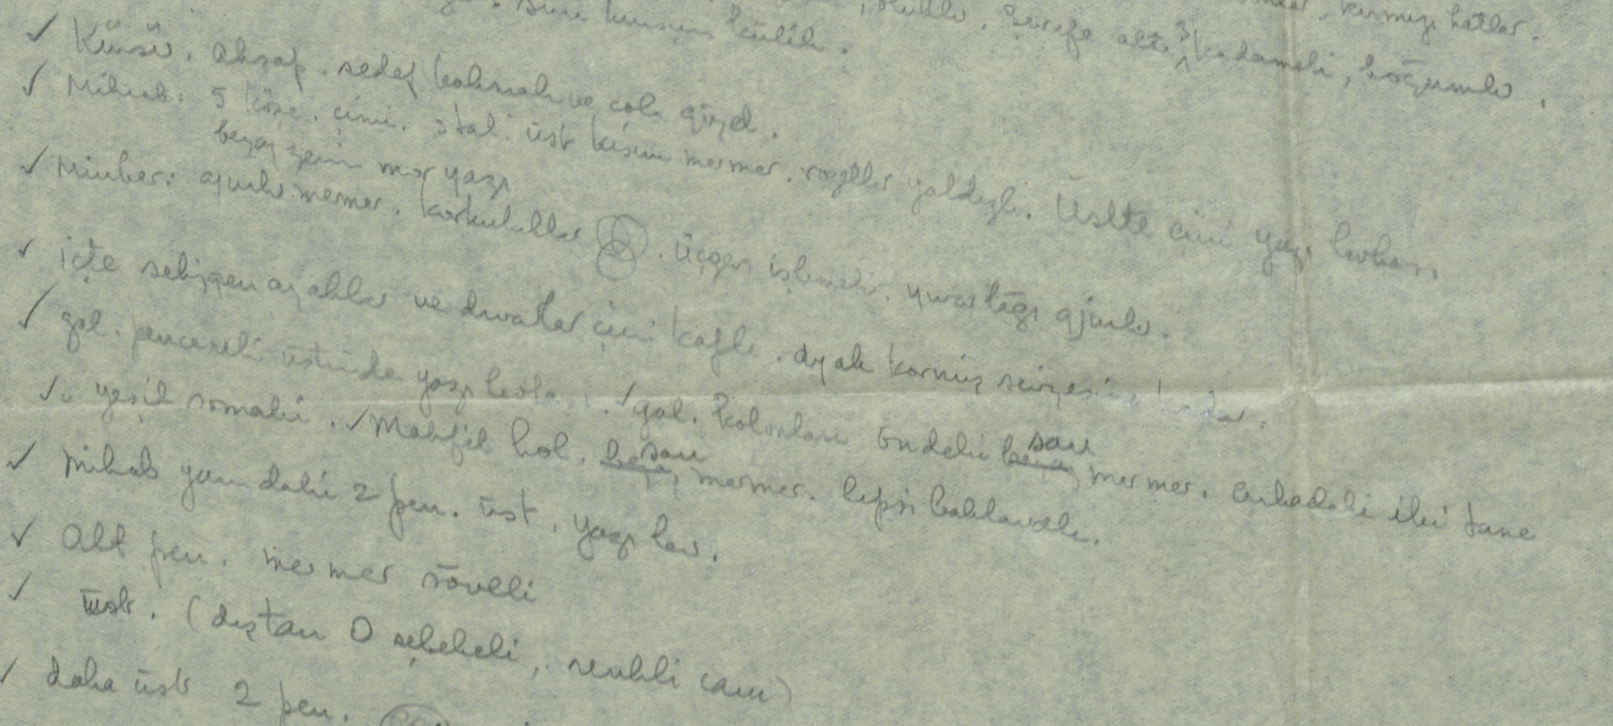 kırmızı hatlar.
külâh. Şerefe altı 3 kademeli, boğumlu.
✓ Kürsü. ahşap. sedef kakmalı ve çok güzel.
✓ Mihrab: 5 köşe. çini. stal. üst kısım mermer. yaldızlı. Üstte çini yazı levhası
beyaz zemin mor yazı
✓ Minber: ajurlu mermer. korkuluklar. üçgen işlemeli. ajurlu.
✓ içte sekizgen ayaklar ve duvarlar çini kaplı. ayak korniş
✓ gal. pencereli üstünde yazı ✓ gal. kolonları öndeki beyaz sarı mermer. arkadaki iki tane
✓ yeşil somaki. ✓ Mahfil kol. beyaz sarı mermer. hepsi baklavalı.
✓ Mihrab yanındaki 2 pen. üst. yazı lev.
✓ Alt pen. mermer söveli
✓ üst. (dıştan O şebekeli, renkli cam)
✓ daha üst 2 pen.